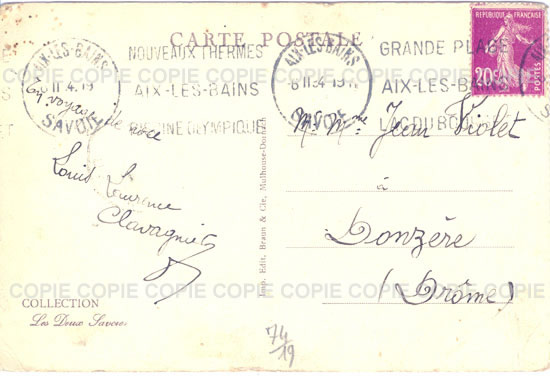 CARTE POSTALE
AIX-LES-BAINS
SAVOIE
NOUVEAUX THERMES
AIX-LES-BAINS
PISCINE OLYMPIQUE
AIX-LES-BAINS
SAVOIE
GRANDE PLAGE
AIX-LES-BAINS
LAC DU BOURGET
REPUBLIQUE FRANÇAISE
20c
COPIE COPIE COPIE COPIE COPIE COPIE COPIE COPIE
En voyage
de noce
Louis Laurence
Clavagnier
Mr Mme Jean Violet
à
Donzère
(Drôme)
Imp. Edit. Braun & Cie, Mulhouse-Dornach
COPIE COPIE COPIE COPIE COPIE COPIE COPIE COPIE
COLLECTION
Les Deux Savoies
74/19